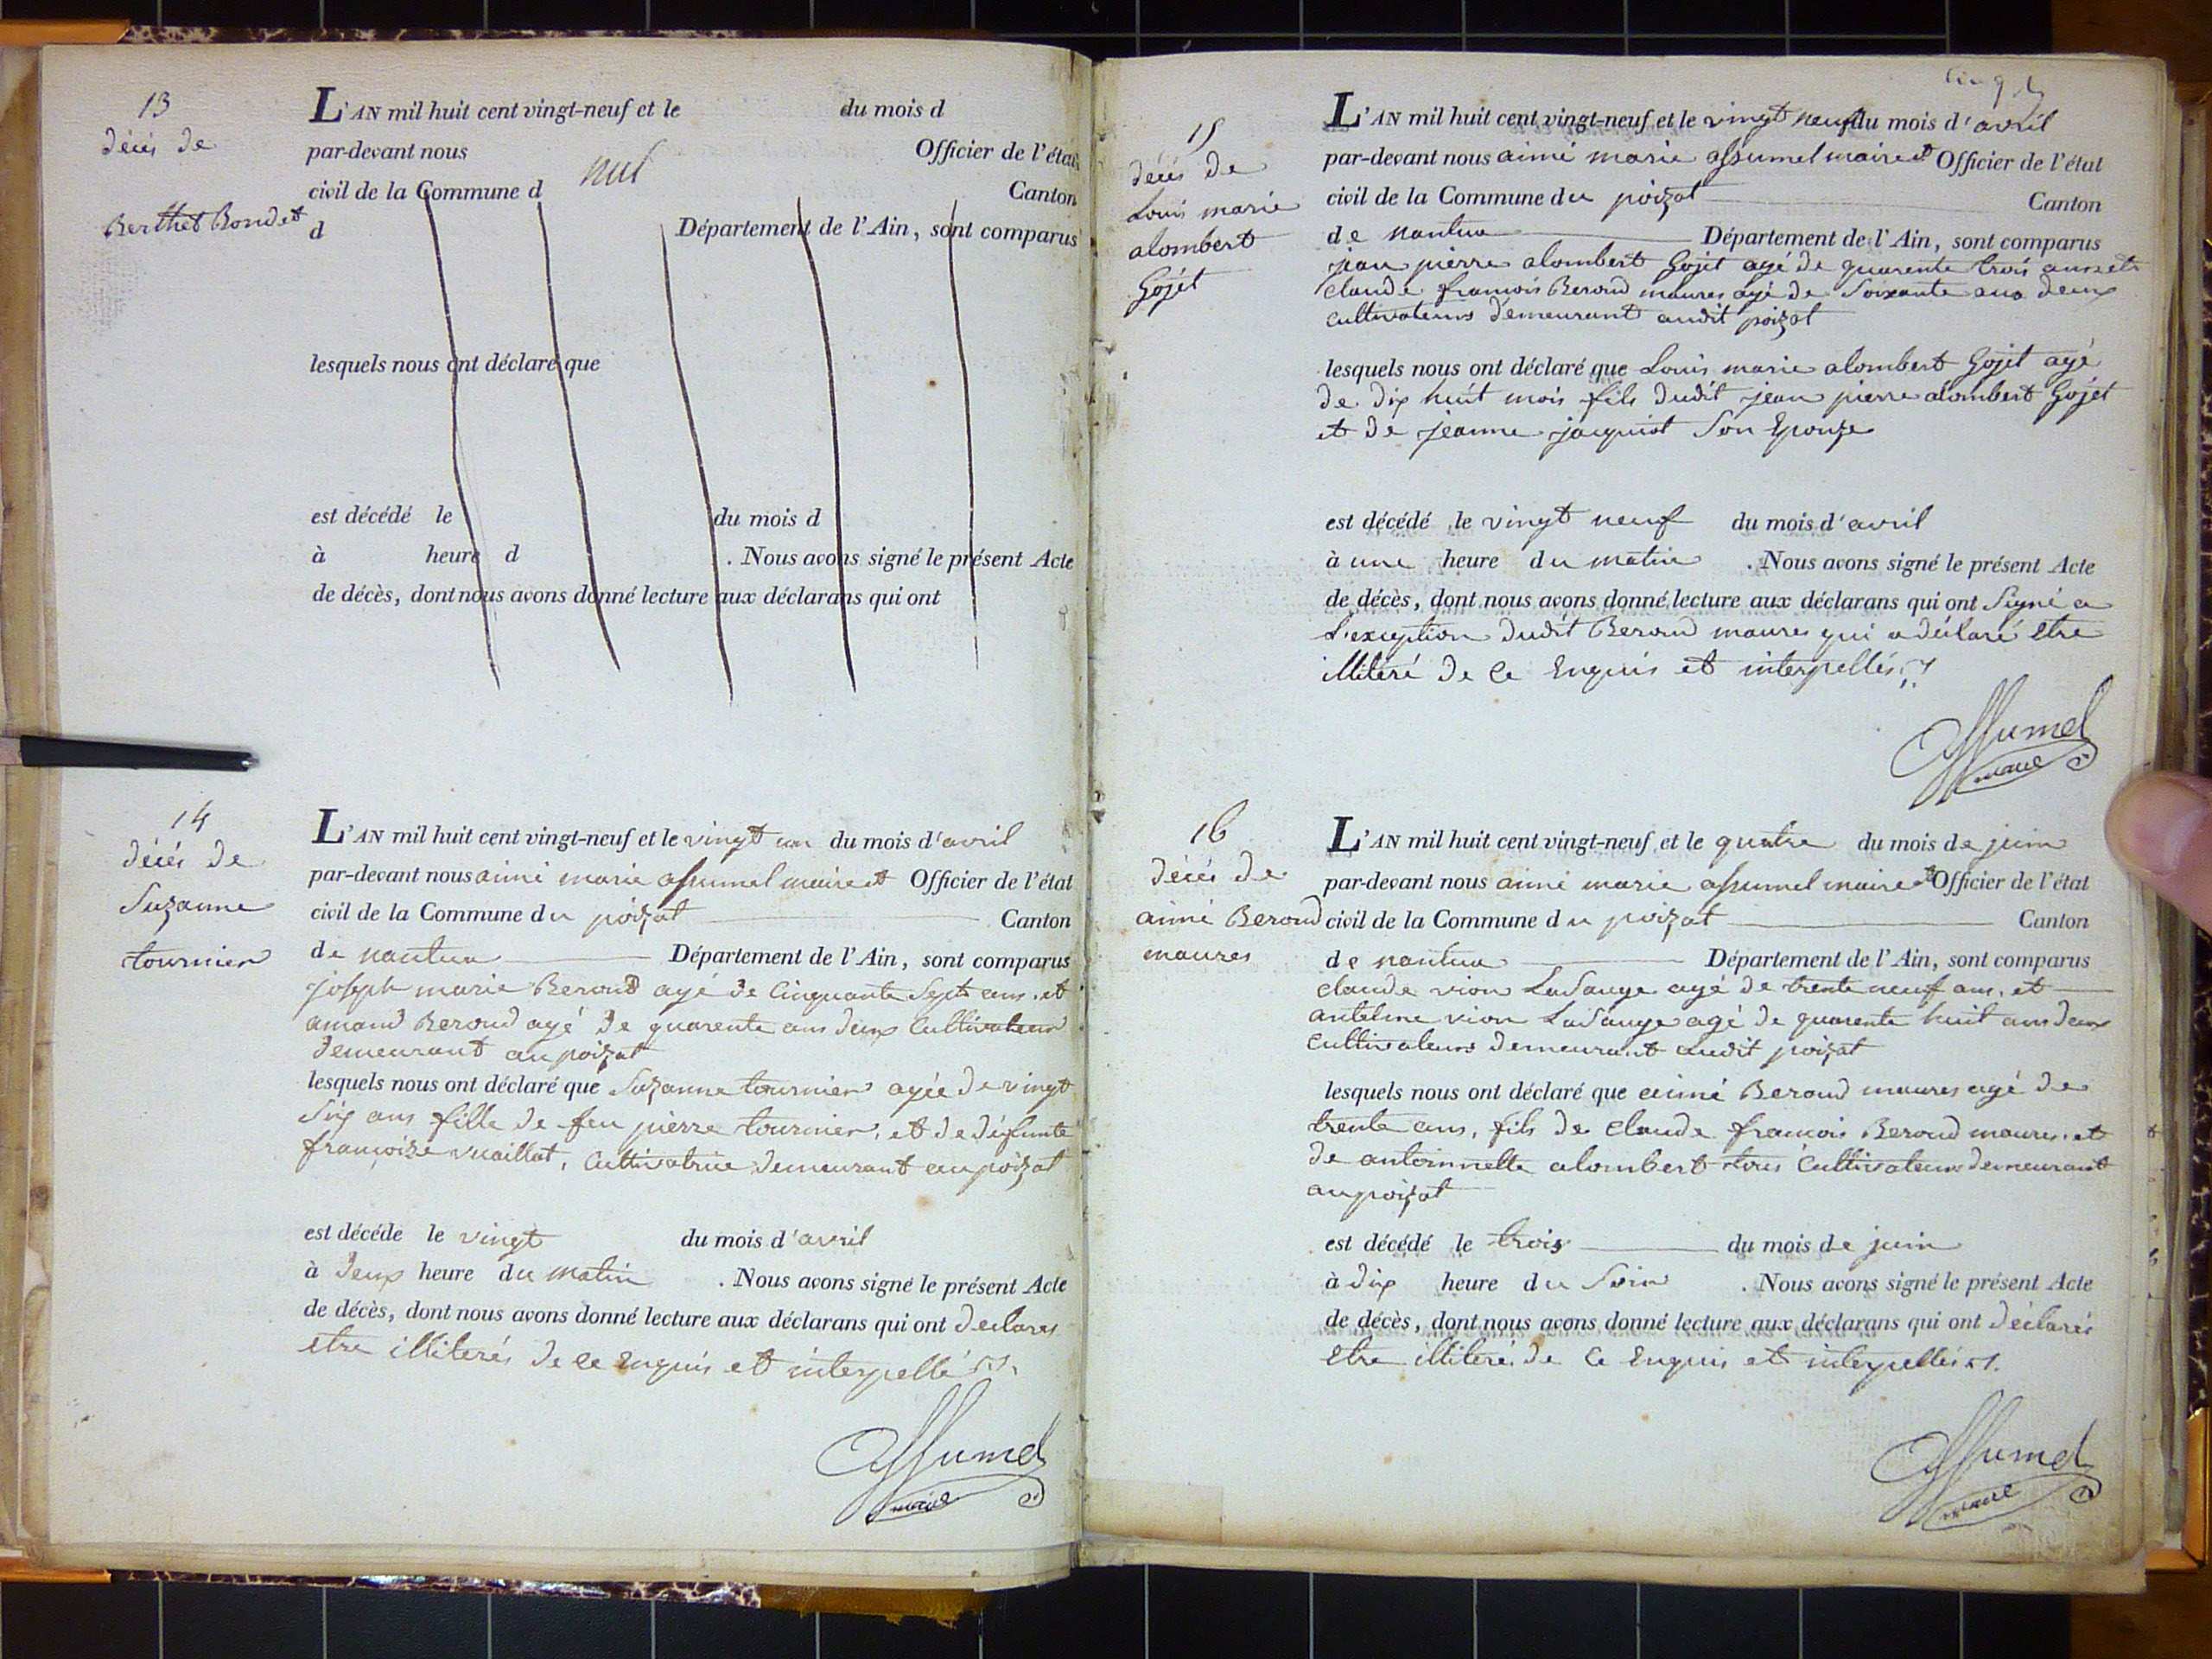 13
décès de
Berthet Bondet
L'AN mil huit cent vingt-neuf et le du mois d
par-devant nous Officier de l'état
nul
civil de la Commune d Canton
d Département de l'Ain, sont comparus
lesquels nous ont déclaré que
est décédé le du mois d
à heure d . Nous avons signé le présent Acte
de décès, dont nous avons donné lecture aux déclarans qui ont
14
décés de
Suzanne
tournier
L'AN mil huit cent vingt-neuf et le vingt un du mois d'avril
par-devant nous aimé marie assumel maire et Officier de l'état
civil de la Commune du poizat Canton
de nantua Département de l'Ain, sont comparus
joseph marie Beroud agé de Cinquante Sept ans. et
amand Beroud agé de quarente ans deux Cultivateurs
demeurant au poizat
lesquels nous ont déclaré que Suzanne tournier agée de vingt
Six ans fille de feu pierre tournier, et de défunte
françoise vuaillat, Cultivatrice demeurant au poizat
est décéde le vingt du mois d'avril
à deux heure du matin . Nous avons signé le présent Acte
de décès, dont nous avons donné lecture aux déclarans qui ont declarés
etre illiterés de ce enquis et interpellé
assumel
maire
15
décés de
Louis marie
alombert
Gojet
L'AN mil huit cent vingt-neuf et le vingt neuf du mois d'avril
par-devant nous aimé marie assumel maire et Officier de l'état
civil de la Commune du poizat Canton
de nantua Département de l'Ain, sont comparus
jean pierre alombert Gojet agé de quarente trois ans et
Claude françois Beroud maures agé de Soixante ans deux
Cultivateurs demeurant audit poizat
lesquels nous ont déclaré que Louis marie alombert Gojet agé
de dix huit mois fils dudit jean pierre alombert Gojet
et de jeanne jacquiot Son Epouze
est décédé le vingt neuf du mois d'avril
à une heure du matin . Nous avons signé le présent Acte
de décès, dont nous avons donné lecture aux déclarans qui ont Signé a
L'exception dudit Beroud maures qui a déclaré etre
illiteré de Ce Enquis et interpellés
assumel
maire
16
décés de
aimé Beroud
maures
L'AN mil huit cent vingt-neuf et le quatre du mois de juin
par-devant nous aimé marie assumel maire et Officier de l'état
civil de la Commune du poizat Canton
de nantua Département de l'Ain, sont comparus
Claude vion Ladauge agé de trente neuf ans, et
antelme vion Ladauge agé de quarente huit ans deux
Cultivateurs demeurant audit poizat
lesquels nous ont déclaré que aimé Beroud maures agé de
trente ans, fils de Claude françois Beroud maures et
de antoinnette alombert tous Cultivateurs demeurant
au poizat
est décédé le trois du mois de juin
à dix heure du Soir . Nous avons signé le présent Acte
de décès, dont nous avons donné lecture aux déclarans qui ont déclarés
Etre illiteré de Ce Enquis et interpellés
assumel
maire